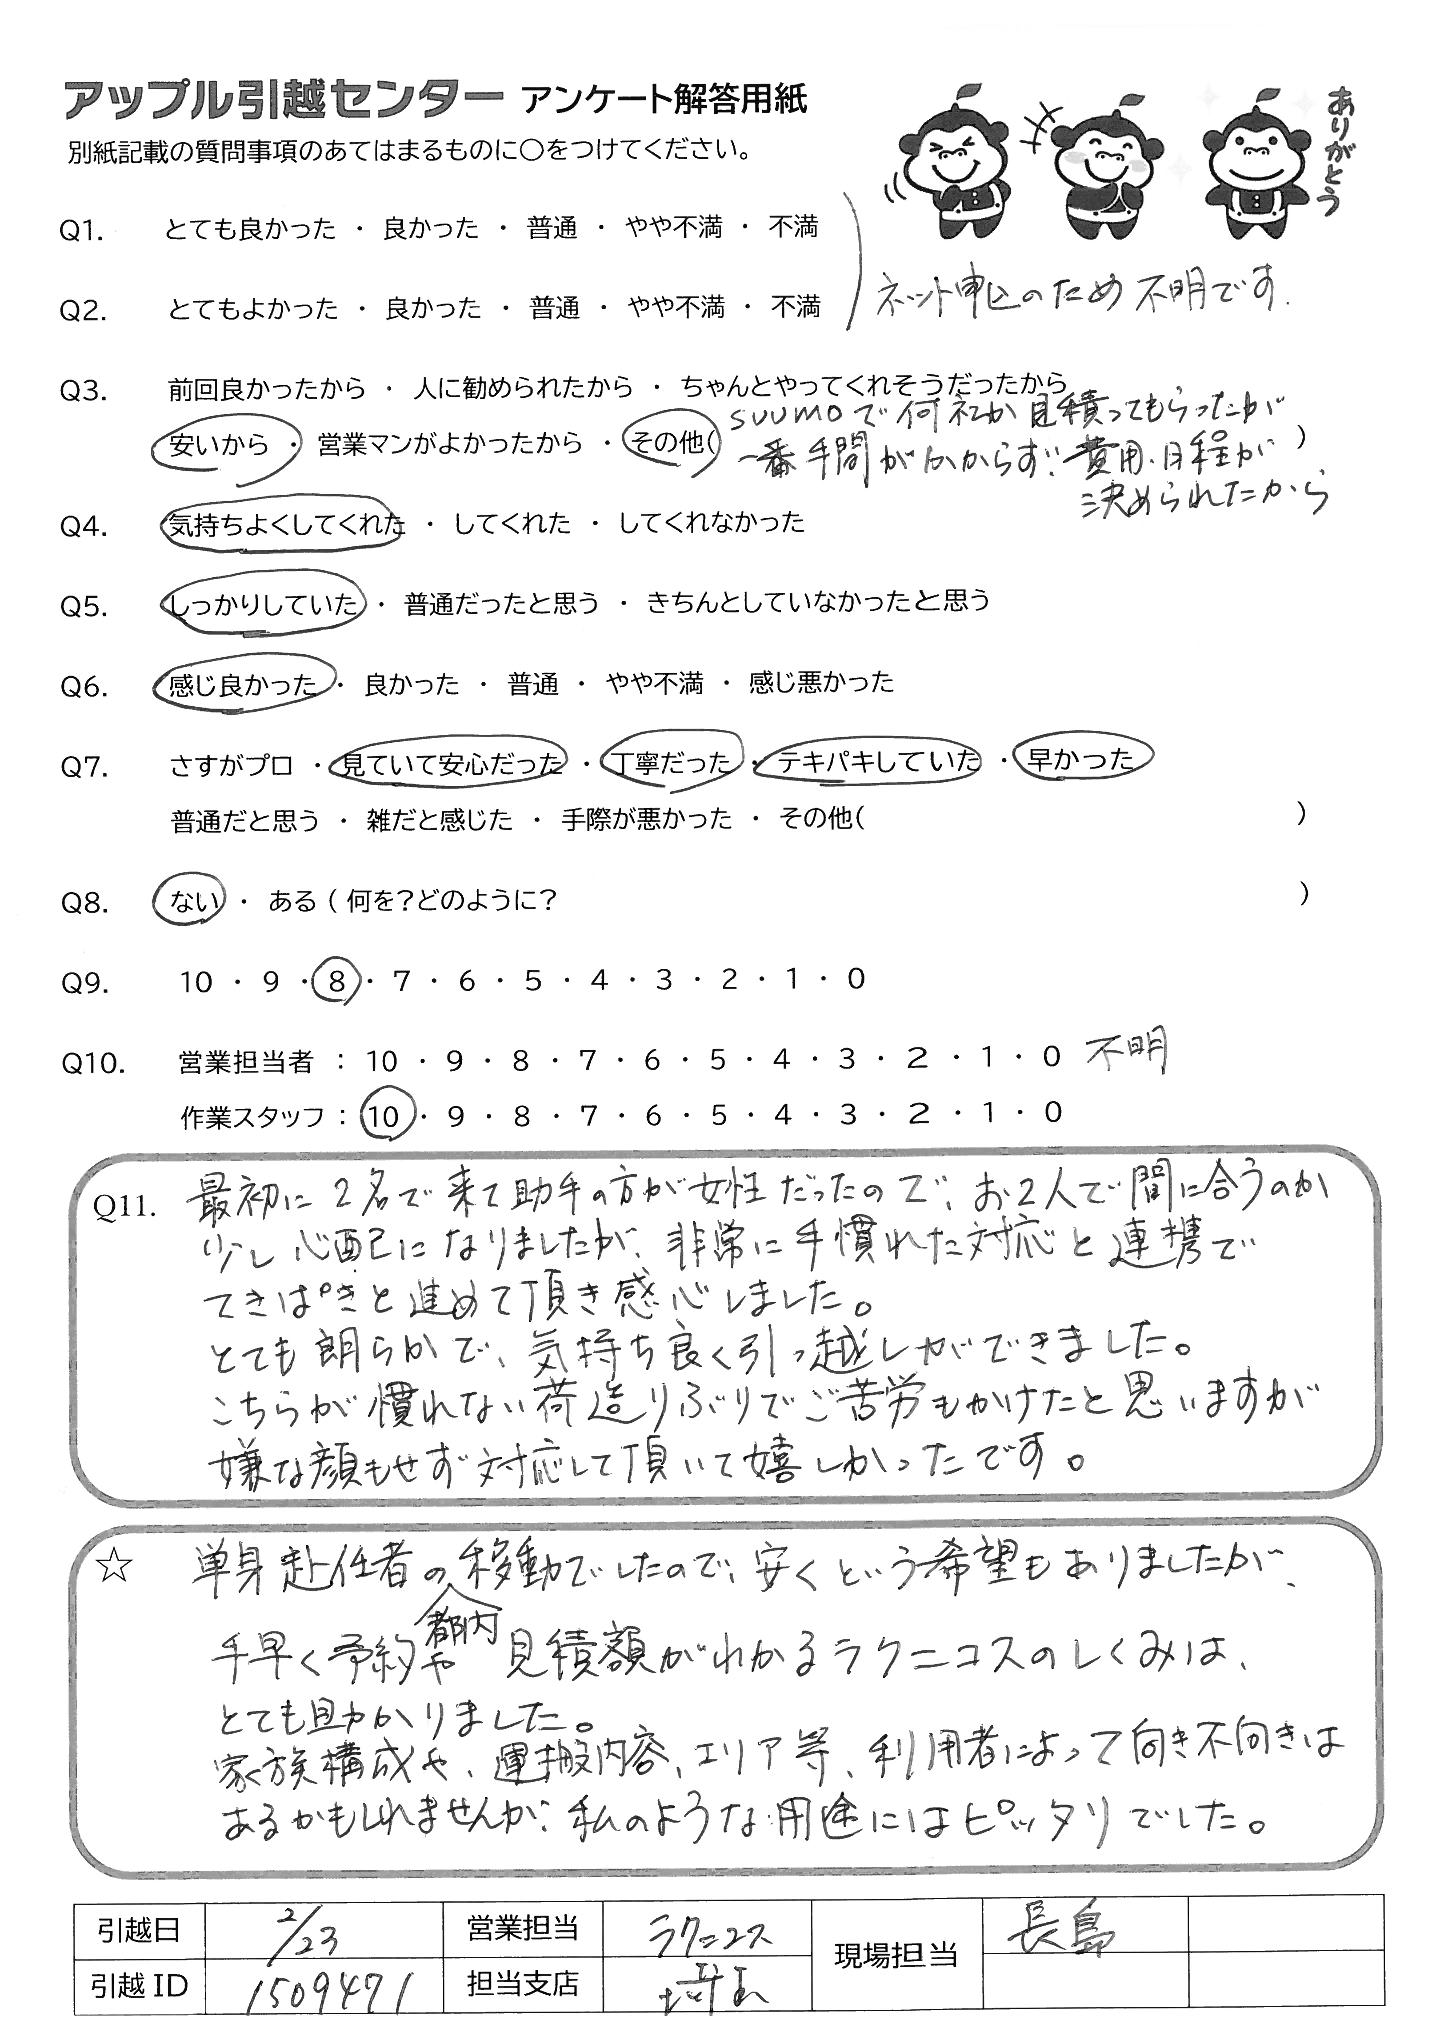 アップル引越センター アンケート解答用紙
ありがとう
別紙記載の質問事項のあてはまるものに○をつけてください。
Q1. とても良かった ・ 良かった ・ 普通 ・ やや不満 ・ 不満
Q2. とてもよかった ・ 良かった ・ 普通 ・ やや不満 ・ 不満
ネット申込のため不明です.
Q3. 前回良かったから ・ 人に勧められたから ・ ちゃんとやってくれそうだったから
安いから ・ 営業マンがよかったから ・ その他( )
SUUMOで何社か見積ってもらったが
一番手間がかからず、費用、日程が
決められたから
Q4. 気持ちよくしてくれた ・ してくれた ・ してくれなかった
Q5. しっかりしていた ・ 普通だったと思う ・ きちんとしていなかったと思う
Q6. 感じ良かった ・ 良かった ・ 普通 ・ やや不満 ・ 感じ悪かった
Q7. さすがプロ ・ 見ていて安心だった ・ 丁寧だった ・ テキパキしていた ・ 早かった
普通だと思う ・ 雑だと感じた ・ 手際が悪かった ・ その他( )
Q8. ない ・ ある ( 何を?どのように? )
Q9. 10 ・ 9 ・ 8 ・ 7 ・ 6 ・ 5 ・ 4 ・ 3 ・ 2 ・ 1 ・ 0
Q10. 営業担当者 : 10 ・ 9 ・ 8 ・ 7 ・ 6 ・ 5 ・ 4 ・ 3 ・ 2 ・ 1 ・ 0 不明
作業スタッフ : 10 ・ 9 ・ 8 ・ 7 ・ 6 ・ 5 ・ 4 ・ 3 ・ 2 ・ 1 ・ 0
Q11. 最初に2名で来て助手の方が女性だったので、お2人で間に合うのか
少し心配になりましたが、非常に手慣れた対応と連携で
てきぱきと進めて頂き感心しました。
とても朗らかで、気持ち良く引っ越しができました。
こちらが慣れない荷造りぶりでご苦労もかけたと思いますが
嫌な顔もせず対応して頂いて嬉しかったです。
☆ 単身赴任者の都内移動でしたので、安くという希望もありましたが、
手早く予約や見積額がわかるラクニコスのしくみは、
とても助かりました。
家族構成や、運搬内容、エリア等、利用者によって向き不向きは
あるかもしれませんが、私のような用途にはピッタリでした。
引越日 2/23 営業担当 ラクニコス 現場担当 長島
引越ID 1509471 担当支店 埼玉